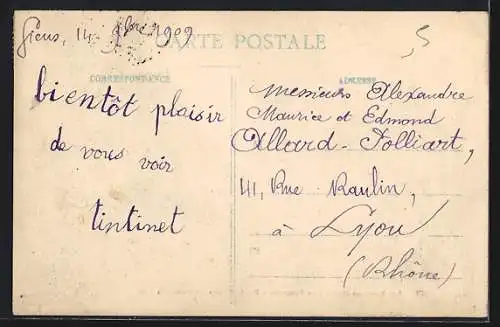 Giens, 14 9bre 1909
CARTE POSTALE
5
CORRESPONDANCE
ADRESSE
bientôt plaisir
de vous voir
tintinet
Messieurs Alexandre
Maurice et Edmond
Allard-Jolliart,
41, Rue Raulin,
à Lyon
(Rhône)